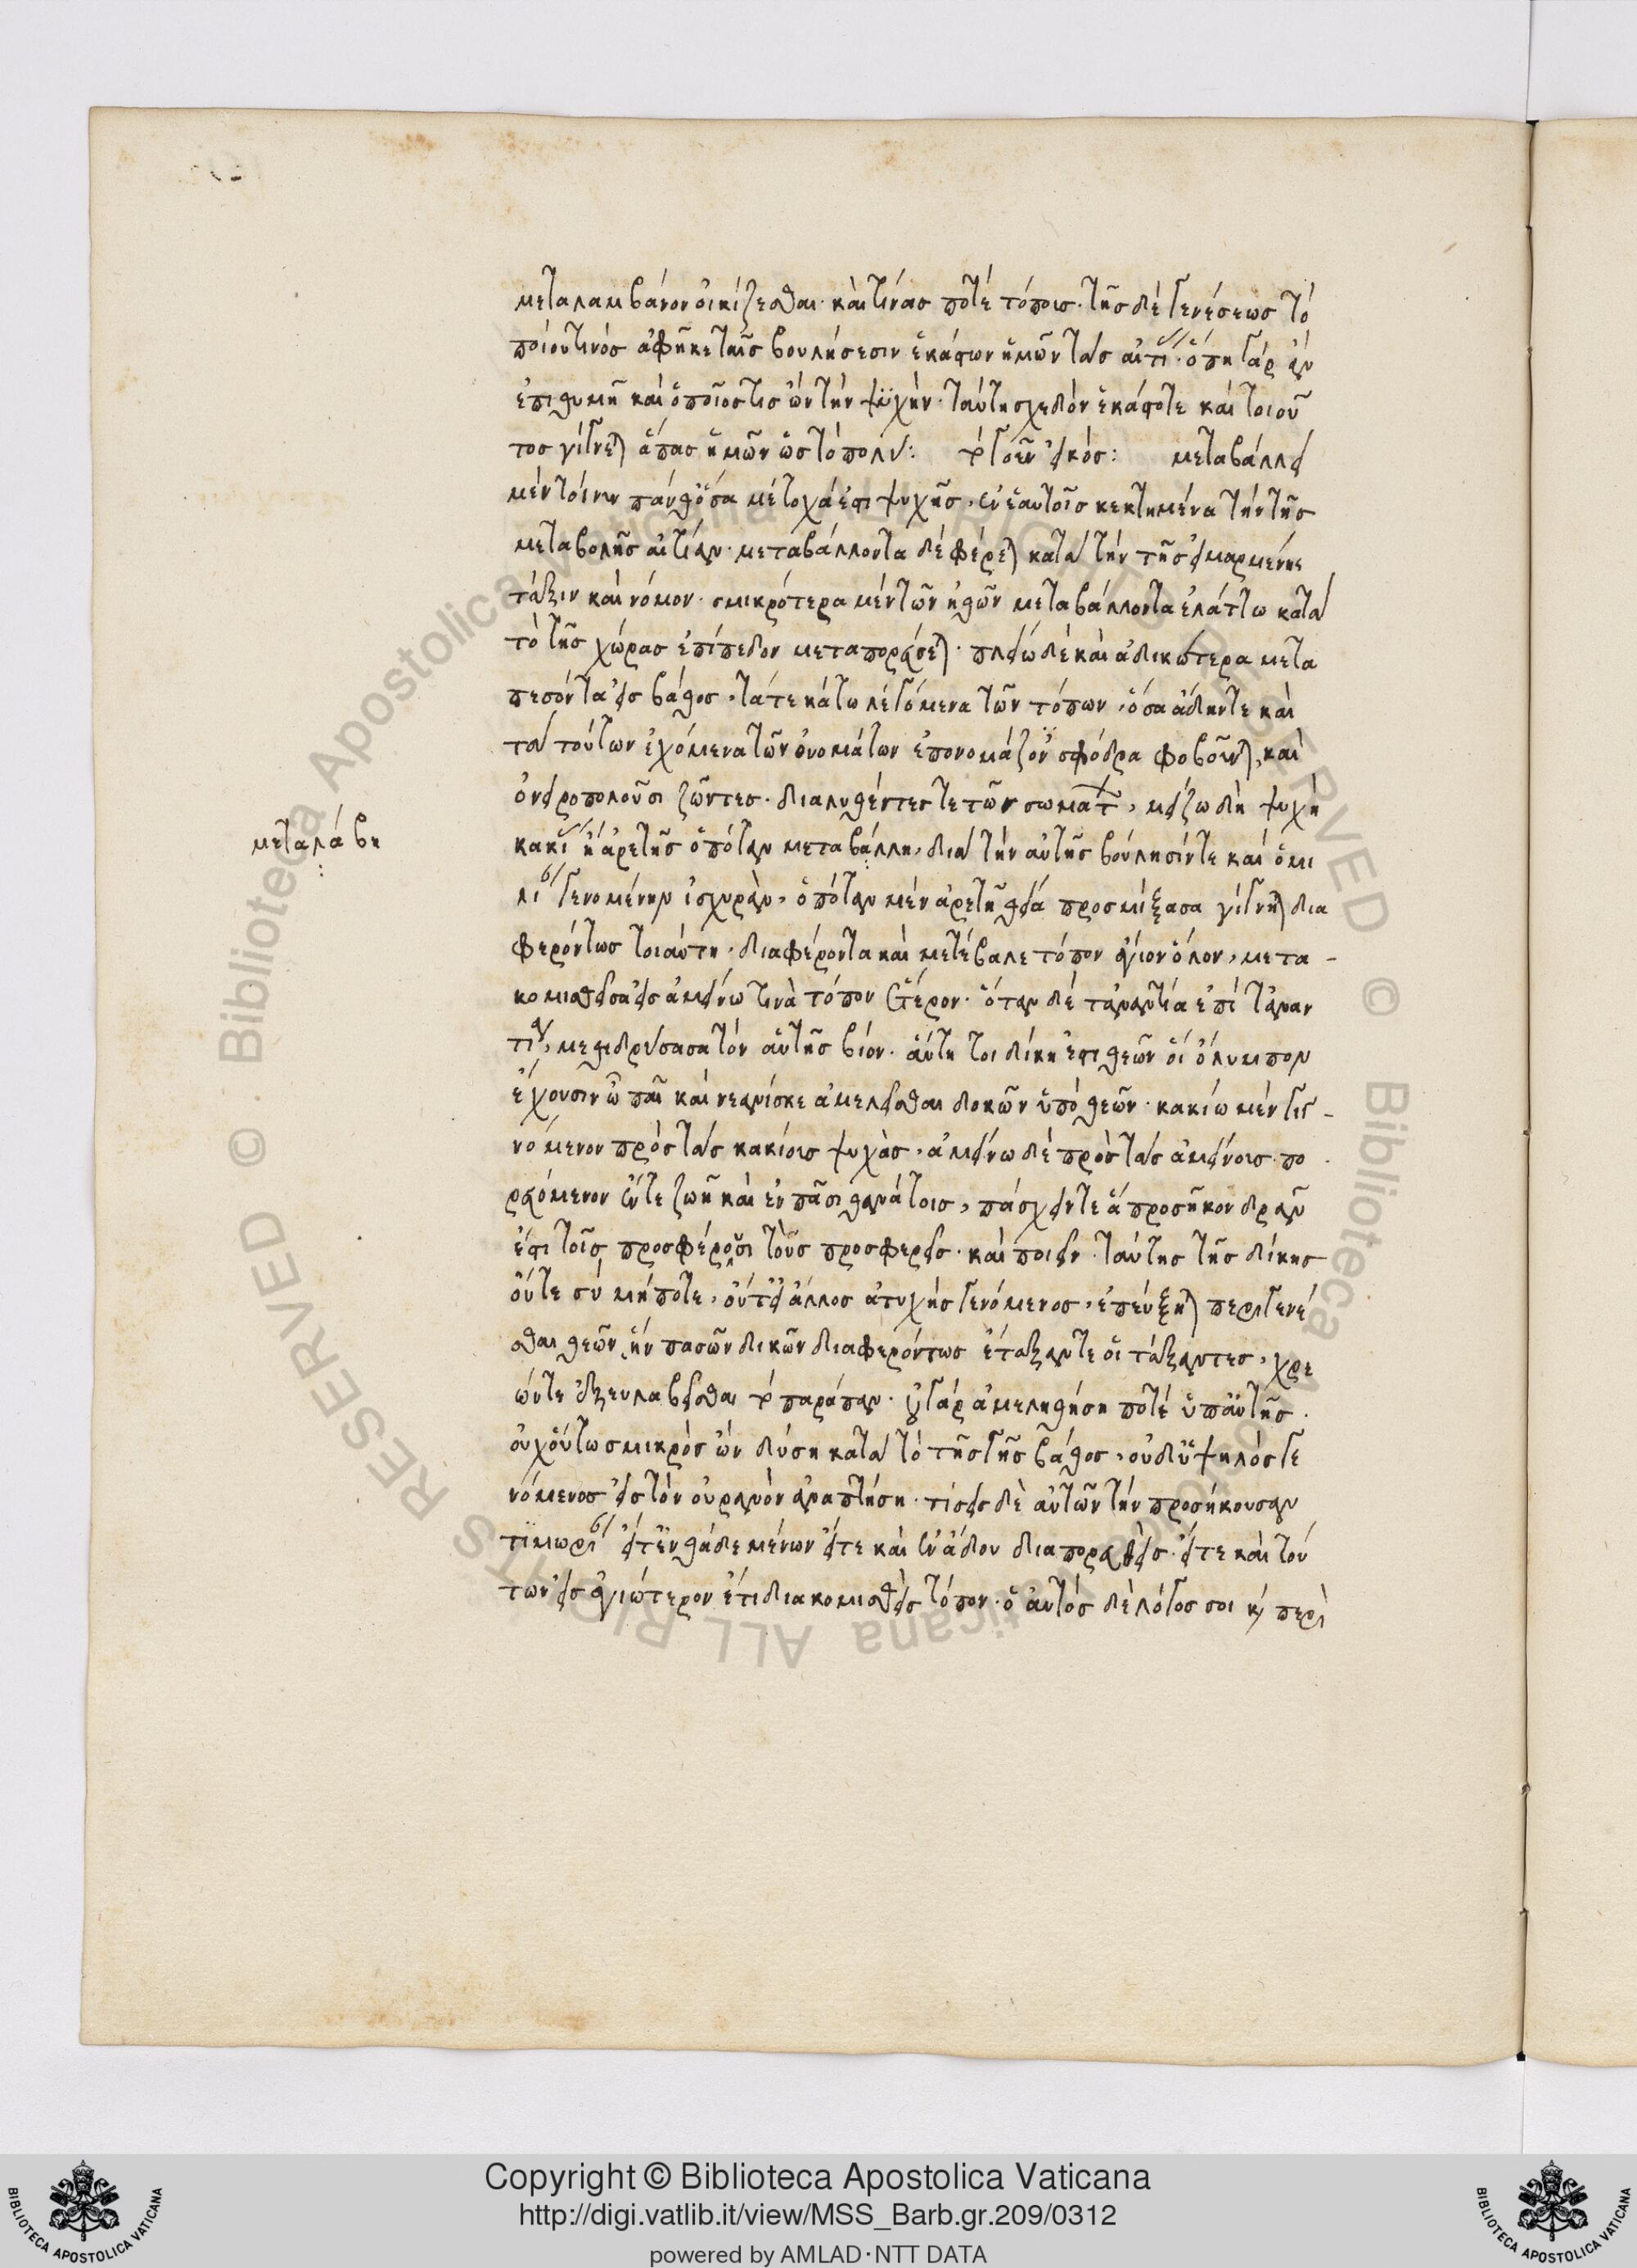 μεταλαμβάνον οἰκίζεσθαι· καὶ τίνας ποτὲ τόπους· τῆς δὲ γενέσεως τὸ
ποίου τινὸς ἀφῆκε ταῖς βουλήσεσιν ἑκάστων ἡμῶν τὰς αἰτίας· ὅπη γὰρ ἂν
ἐπιθυμῇ καὶ ὁποῖός τις ὢν τὴν ψυχήν· ταύτῃ σχεδὸν ἑκάστοτε καὶ τοιοῦ
τος γίγνεται ἅπας ἡμῶν ὡς τὸ πολύ: τὸ γοῦν εἰκός: μεταβάλλει
μὲν τοίνυν πάνθ' ὅσα μέτοχά ἐστι ψυχῆς, ἐν ἑαυτοῖς κεκτημένα τὴν τῆς
μεταβολῆς αἰτίαν· μεταβάλλοντα δὲ φέρεται κατὰ τὴν τῆς εἱμαρμένης
τάξιν καὶ νόμον· σμικρότερα μὲν τῶν ἠθῶν μεταβάλλοντα ἐλάττω κατὰ
τὸ τῆς χώρας ἐπίπεδον μεταπορεύεται· πλείω δὲ καὶ ἀδικώτερα μετα
πεσόντα εἰς βάθος, τά τε κάτω λεγόμενα τῶν τόπων, ὅσα ἅδην τε καὶ
τὰ τούτων ἐχόμενα τῶν ὀνομάτων ἐπονομάζον σφόδρα φοβοῦνται, καὶ
ὀνειροπολοῦσι ζῶντες· διαλυθέντες τε τῶν σωμάτων, μείζω δὴ ψυχὴ
κακίας ἢ ἀρετῆς ὁπόταν μεταβάλλῃ, διὰ τὴν αὑτῆς βούλησίν τε καὶ ὁμι
λίαν γενομένην ἰσχυράν, ὁπόταν μὲν ἀρετῇ θείᾳ προσμίξασα γίγνηται δια
φερόντως τοιαύτη, διαφέροντα καὶ μετέβαλε τόπον ἅγιον ὅλον, μετα-
κομισθεῖσα εἰς ἀμείνω τινὰ τόπον ἕτερον· ὅταν δὲ τἀναντία ἐπὶ τἀναν
τία, μεθιδρύσασα τὸν αὑτῆς βίον· αὕτη τοι δίκη ἐστὶ θεῶν οἳ ὄλυμπον
ἔχουσιν ὦ παῖ καὶ νεανίσκε ἀμελεῖσθαι δοκῶν ὑπὸ θεῶν· κακίω μὲν γιγ-
νόμενον πρὸς τὰς κακίους ψυχάς, ἀμείνω δὲ πρὸς τὰς ἀμείνους πο
ρευόμενον ἔν τε ζωῇ καὶ ἐν πᾶσι θανάτοις, πάσχειν τε ἃ προσῆκον δρᾶν
ἐστι τοῖς προσφέρουσι τοὺς προσφερεῖς· καὶ ποιεῖν· ταύτης τῆς δίκης
οὔτε σὺ μήποτε, οὔτ' εἰ ἄλλος ἀτυχὴς γενόμενος, ἐπεύξηται περιγενέ
σθαι θεῶν, ἣν πασῶν δικῶν διαφερόντως ἔταξάν τε οἱ τάξαντες, χρε
ών τε ἐξευλαβεῖσθαι τὸ παράπαν· οὐ γὰρ ἀμεληθήσῃ ποτὲ ὑπ' αὐτῆς·
οὐχ οὕτω σμικρὸς ὢν δύσῃ κατὰ τὸ τῆς γῆς βάθος, οὐδ' ὑψηλὸς γε
νόμενος εἰς τὸν οὐρανὸν ἀναπτήσῃ· τίσεις δὲ αὐτῶν τὴν προσήκουσαν
τιμωρίαν εἴτ' ἐνθάδε μένων εἴτε καὶ ἐν ἅδου διαπορευθείς· εἴτε καὶ τού
των εἰς ἁγιώτερον ἔτι διακομισθεὶς τόπον· ὁ αὐτὸς δὲ λόγος σοι καὶ περὶ
μεταλάβη
Copyright © Biblioteca Apostolica Vaticana
http://digi.vatlib.it/view/MSS_Barb.gr.209/0312
powered by AMLAD·NTT DATA